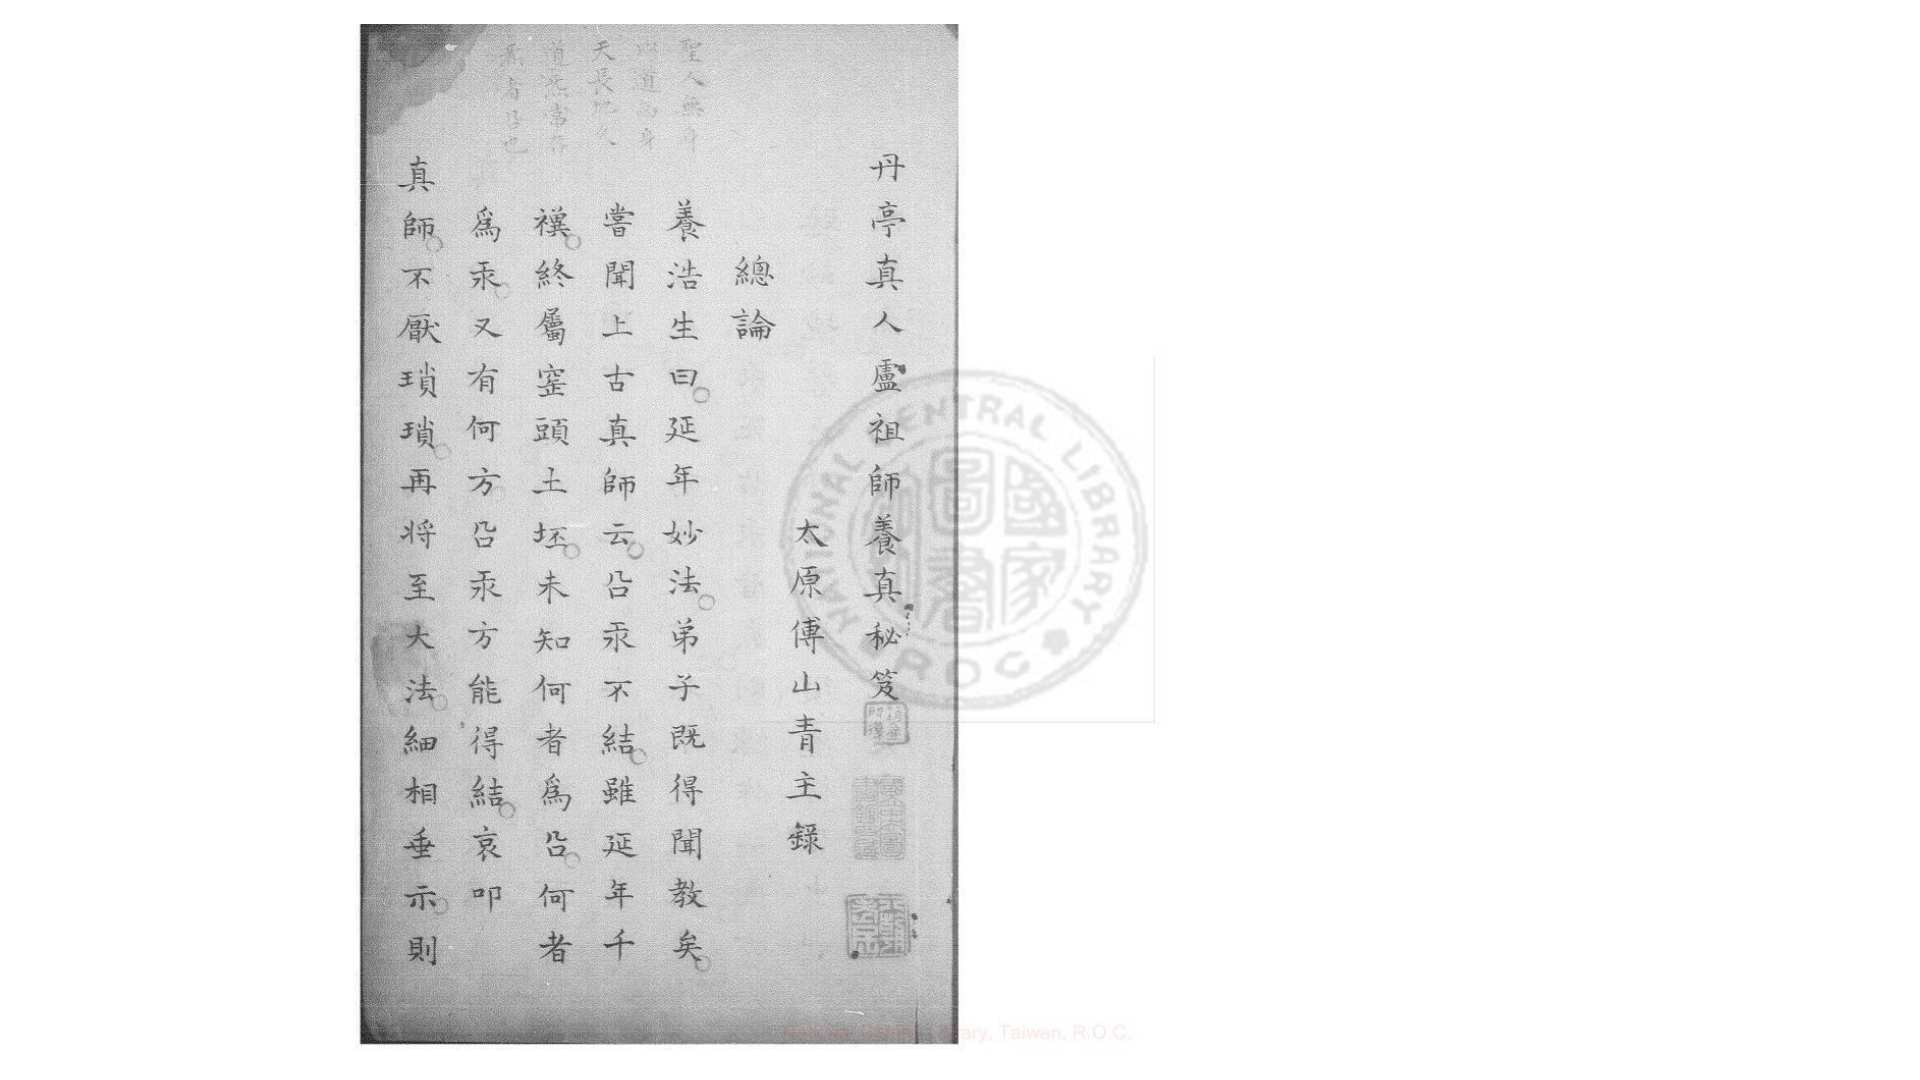 丹亭真人盧祖師養真秘笈
太原傅山青主錄
總論
養浩生曰延年妙法弟子既得聞教矣
嘗聞上古真師云㕣汞不結雖延年千
禩終屬窑頭土坯未知何者為㕣何者
為汞又有何方㕣汞方能得結哀叩
真師不厭瑣瑣再将至大法細相垂示則
聖人無身
以道為身
天長地久
道炁常存
NATIONAL CENTRAL LIBRARY
R O C
國家圖書
Library, Taiwan, R.O.C.